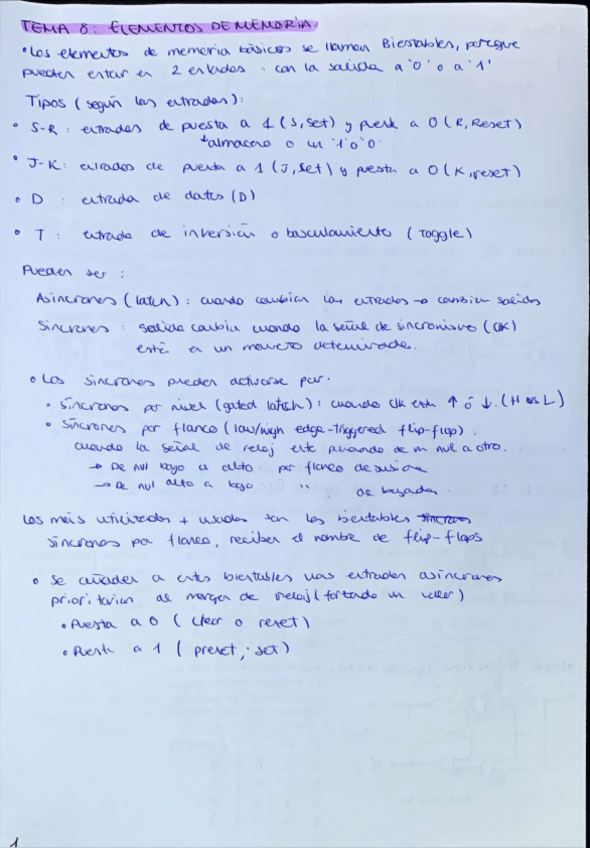 TEMA 8: ELEMENTOS DE MEMORIA.
• Los elementos de memoria básicos se llaman Biestables, porque
pueden estar en 2 estados: con la salida a '0' o a '1'
Tipos (según las entradas):
• S-R: entradas de puesta a 1 (S, Set) y puesta a 0 (R, Reset)
↳ almacena o un '1' o '0'
• J-K: entradas de puesta a 1 (J, set) y puesta a 0 (K, reset)
• D: entrada de datos (D)
• T: entrada de inversión o basculamiento (Toggle)
Pueden ser:
Asíncronos (latch): cuando cambian las entradas → cambian salidas
Síncronos: salida cambia cuando la señal de sincronismo (CK)
está en un momento determinado.
• Los síncronos pueden activarse por:
• Síncronos por nivel (gated latch): cuando clk está ↑ ó ↓. (H o L)
• Síncronos por flanco (low/high edge-triggered flip-flop).
cuando la señal de reloj este pasando de un nivel a otro.
→ De nivel bajo a alto: por flanco de subida
→ De nivel alto a bajo: '' de bajada.
Los más utilizados + usados son los biestables síncronos
síncronos por flanco, reciben el nombre de flip-flops
• Se añaden a estos biestables unas entradas asíncronas
prioritarias al margen de reloj (forzando un valor)
• Puesta a 0 (clear o reset)
• Puesta a 1 (preset, set)
1